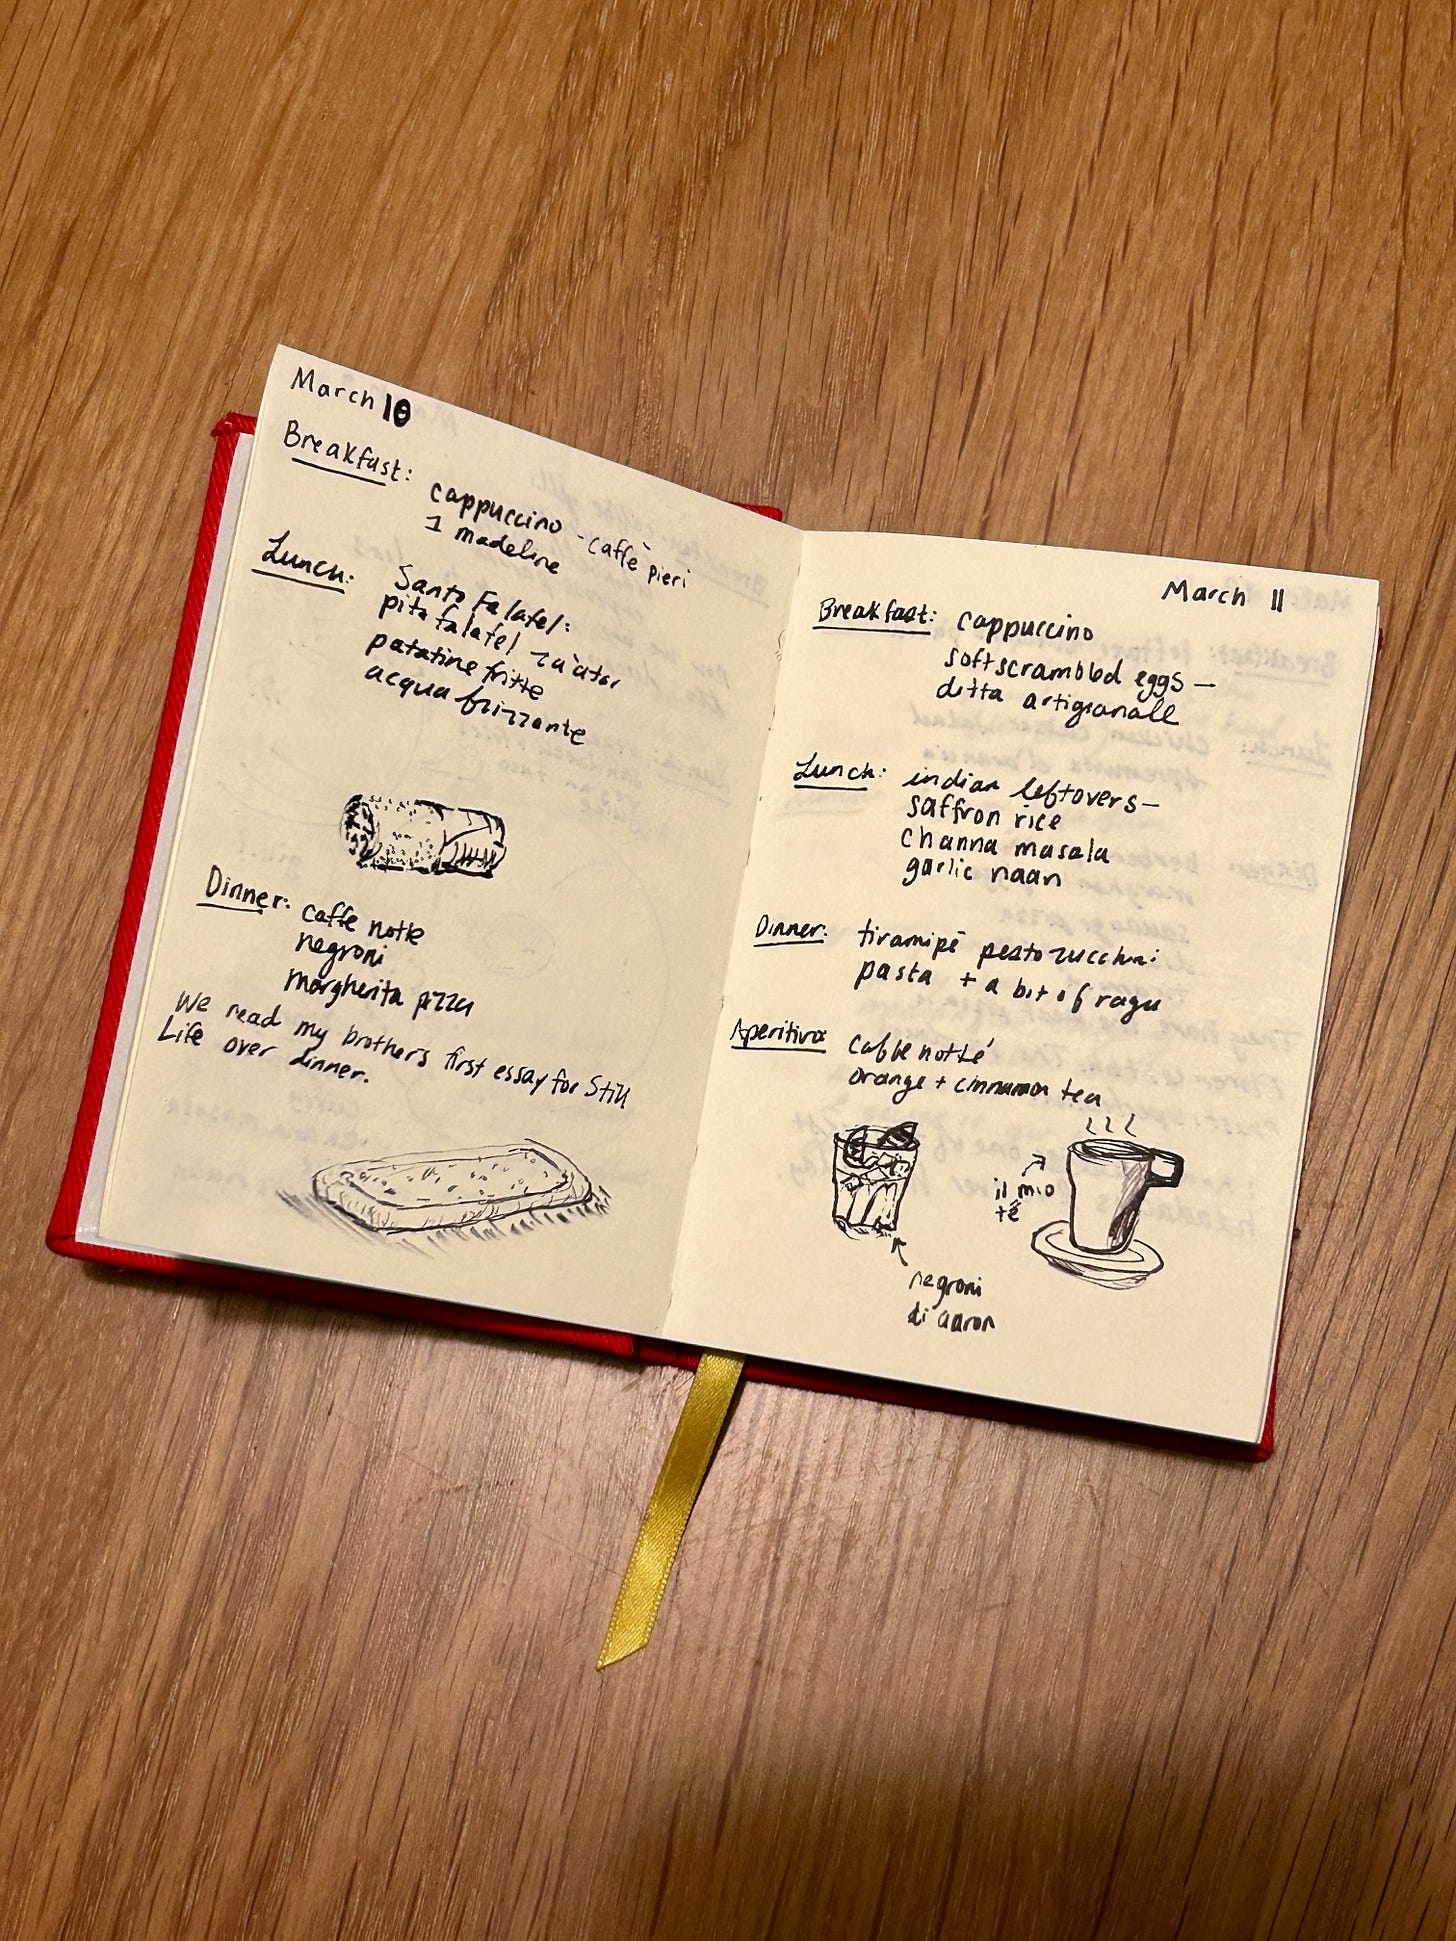 March 10
Breakfast:
cappuccino - caffè pieri
1 madeline
Lunch:
Santo Falafel:
pita falafel za'atar
patatine fritte
acqua frizzante
Dinner:
caffe notte
negroni
margherita pizza
We read my brother's first essay for Still
Life over dinner.
March 11
Breakfast: cappuccino
soft scrambled eggs —
ditta artigianale
Lunch: indian leftovers —
saffron rice
channa masala
garlic naan
Dinner: pesto zucchini
pasta + a bit of ragu
Aperitivo caffe notte
orange + cinnamon tea
il mio
tè
negroni
di aaron